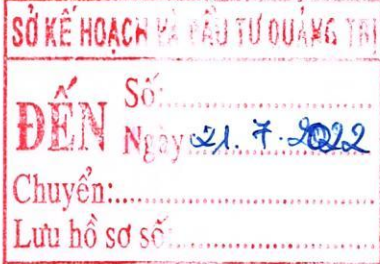 SỞ KẾ HOẠCH VÀ ĐẦU TƯ QUẢNG TRỊ
ĐẾN
Số:
Ngày 21. 7. 2022
Chuyển:
Lưu hồ sơ số: